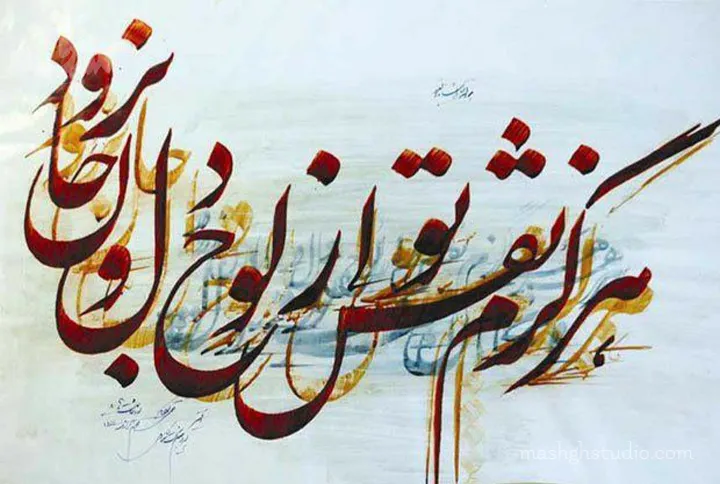 هرگزم نقش تو از لوح دل و جان نرود
mashghstudio.com